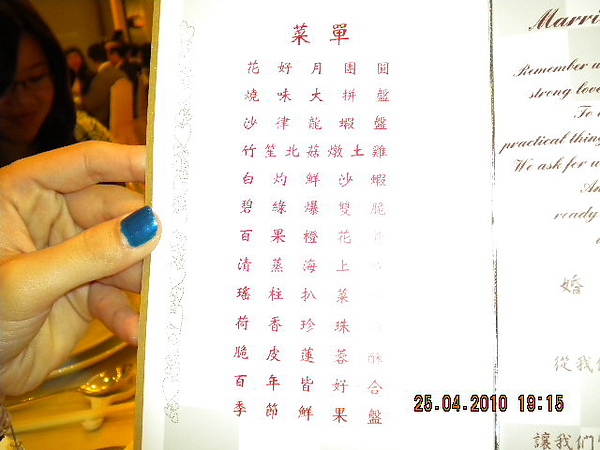 菜單
花好月團圓
燒味大拼盤
沙律龍蝦盤
竹笙北菇燉土雞
白灼鮮沙蝦
碧綠爆雙脆
百果橙花
清蒸海上
瑤柱扒菜
荷香珍珠
脆皮蓮蓉酥
百年皆好合
季節鮮果盤
Marri
Remember
strong love
To
practical thing
We ask for u
An
ready
婚
從我
讓我們
25.04.2010 19:15